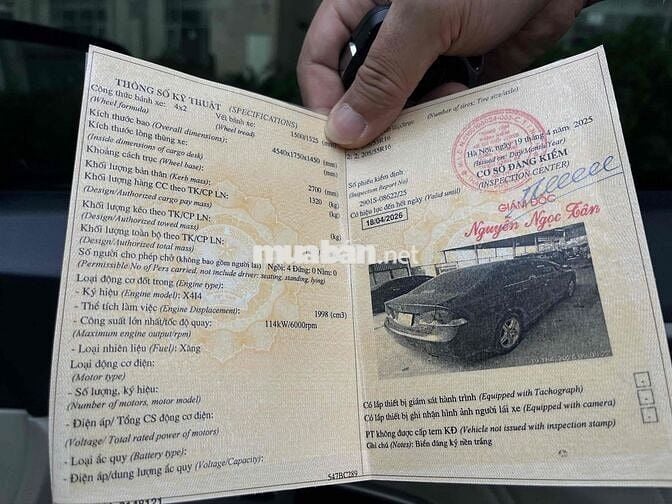 THÔNG SỐ KỸ THUẬT (SPECIFICATIONS)
Công thức bánh xe: 4x2 Vết bánh xe: 1500/1525 mm
(Wheel formula) (Wheel tread)
Kích thước bao (Overall dimensions): 4540x1750x1450 (mm)
Kích thước lòng thùng xe:
(Inside dimensions of cargo desk)
Khoảng cách trục (Wheel base): 2700 (mm)
Khối lượng bản thân (Kerb mass): 1320 (kg)
Khối lượng hàng CC theo TK/CP LN:
(Design/Authorized cargo pay mass)
Khối lượng kéo theo TK/CP LN: (kg)
(Design/Authorized towed mass)
Khối lượng toàn bộ theo TK/CP LN: (kg)
(Design/Authorized total mass)
Số người cho phép chở (không bao gồm người lái) Ngồi: 4 Đứng: 0 Nằm: 0
(Permissible No of Pers carried, not include driver: seating, standing, lying)
Loại động cơ đốt trong (Engine type):
- Ký hiệu (Engine model): X4I4
- Thể tích làm việc (Engine Displacement): 1998 (cm3)
- Công suất lớn nhất/tốc độ quay: 114kW/6000rpm
(Maximum engine output/rpm)
- Loại nhiên liệu (Fuel): Xăng
Loại động cơ điện:
(Motor type)
- Số lượng, ký hiệu:
(Number of motors, motor model)
- Điện áp/ Tổng CS động cơ điện:
(Voltage/ Total rated power of motors)
- Loại ắc quy (Battery type):
- Điện áp/dung lượng ắc quy (Voltage/Capacity):
547BC289
(Number of tires: Tire size/axle)
2: 2: 205/55R16
Số phiếu kiểm định:
(Inspection Report No)
2901S-08622/25
Có hiệu lực đến hết ngày (Valid until)
18/04/2026
Hà Nội, ngày 19 tháng 4 năm 2025
(Issued on: Day/Month/Year)
CƠ SỞ ĐĂNG KIỂM
(INSPECTION CENTER)
GIÁM ĐỐC
Nguyễn Ngọc Tân
muaban.net
Có lắp thiết bị giám sát hành trình (Equipped with Tachograph)
Có lắp thiết bị ghi nhận hình ảnh người lái xe (Equipped with camera)
PT không được cấp tem KĐ (Vehicle not issued with inspection stamp)
Ghi chú (Notes): Biển đăng ký nền trắng